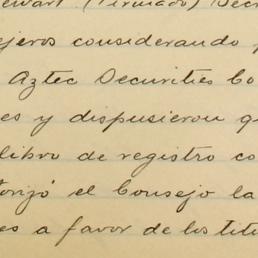 ewart (Firmado) Secr
ejeros considerando p
Aztec Securities Co
es y dispusieron q
libro de registro co
torizó el Consejo la
es a favor de los titu